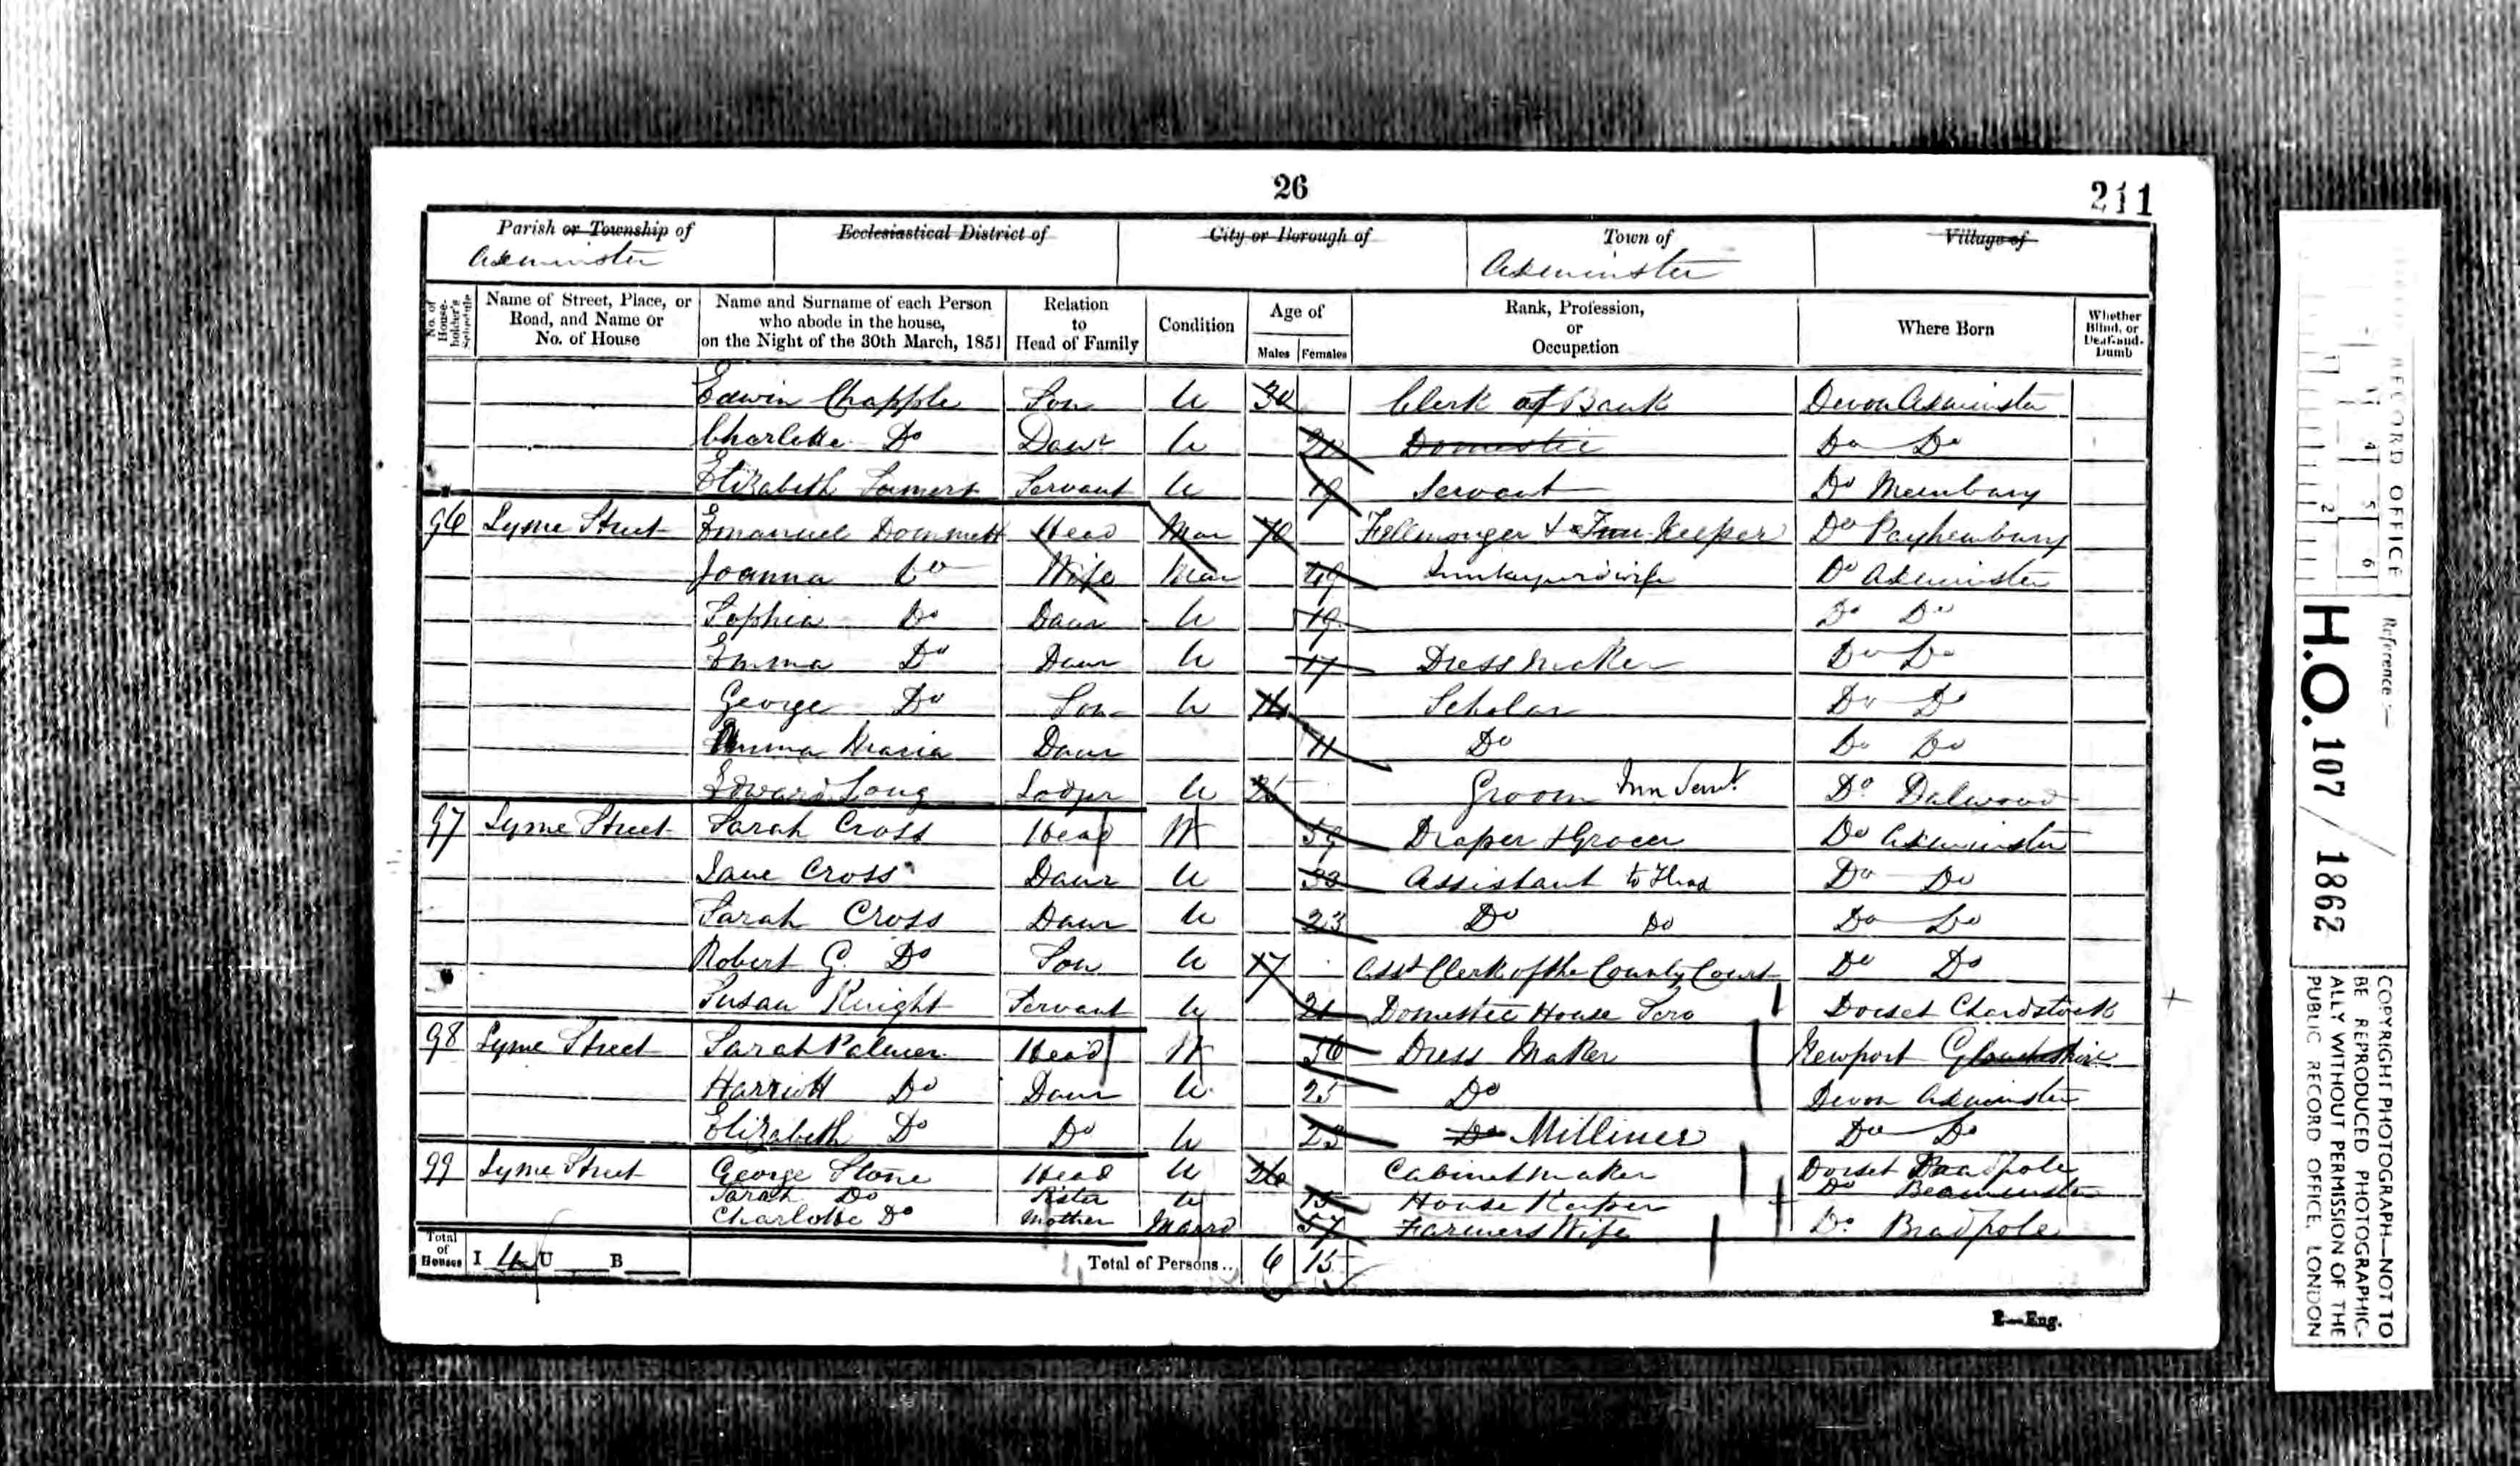 26
211
Parish or Township of
Axminster
Ecclesiastical District of
City or Borough of
Town of
Axminster
Village of
No. of House-holder's Schedule
Name of Street, Place, or Road, and Name or No. of House
Name and Surname of each Person who abode in the house, on the Night of the 30th March, 1851
Relation to Head of Family
Condition
Age of
Males Females
Rank, Profession, or Occupation
Where Born
Whether Blind, or Deaf-and-Dumb
Edwin Chapple Son U 30 Clerk at Bank Devon Axminster
Charlotte Do Daur U Domestic Do Do
Elizabeth Servant U 19 Servant Do Membury
96 Lyme Street Emanuel Dommett Head Mar 70 Fellmonger & Inn Keeper Do Payhembury
Joanna Do Wife Mar 49 Innkeepers wife Do Axminster
Sophia Do Daur U 19 Do Do
Emma Do Daur U 17 Dress Maker Do Do
George Do Son U 14 Scholar Do Do
Maria Daur 11 Do Do Do
Edward Long Lodger U Groom Inn Servt Do Dalwood
97 Lyme Street Sarah Cross Head W 59 Draper & Grocer Do Axminster
Jane Cross Daur U 33 Assistant to Head Do Do
Sarah Cross Daur U 23 Do Do Do Do
Robert G. Do Son U 17 Asst Clerk of the County Court Do Do
Susan Knight Servant U 21 Domestic House Serv Dorset Chardstock
98 Lyme Street Sarah Palmer Head W 56 Dress Maker Newport Gloucshire
Harriett Do Daur U 25 Do Devon Axminster
Elizabeth Do Do U 23 Do Milliner Do Do
99 Lyme Street George Stone Head U 26 Cabinet maker Dorset Bradpole
Sarah Do Sister U 15 House Keeper Do Beaminster
Charlotte Do Mother Marrd 57 Farmers Wife Do Bradpole
Total of Houses I 4 U B Total of Persons.. 6 15
E—Eng.
RECORD OFFICE
1 2 4 5 6
Reference:—
H.O. 107 / 1862
COPYRIGHT PHOTOGRAPH—NOT TO
BE REPRODUCED PHOTOGRAPHIC-
ALLY WITHOUT PERMISSION OF THE
PUBLIC RECORD OFFICE, LONDON